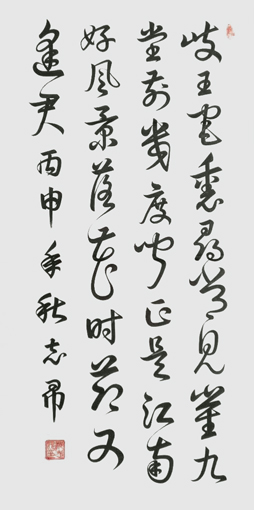 岐王宅里寻常见崔九
堂前几度闻正是江南
好风景落花时节又
逢君丙申年秋志昂